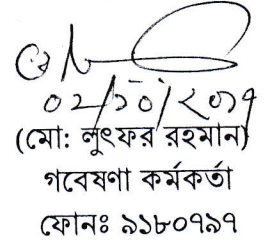 ০২/১০/২০১৭
(মো: লুৎফর রহমান)
গবেষণা কর্মকর্তা
ফোনঃ ৯১৮০৭৯৭